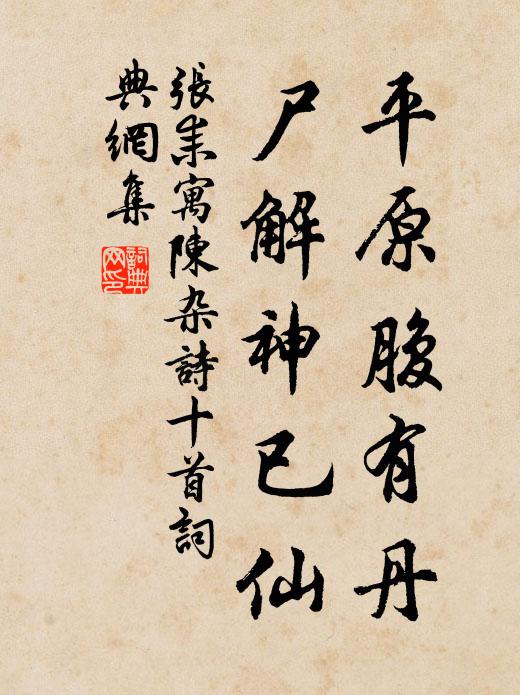 平原腹有丹
尸解神已仙
張耒寓陳杂詩十首詞
典網集
詞典
网印